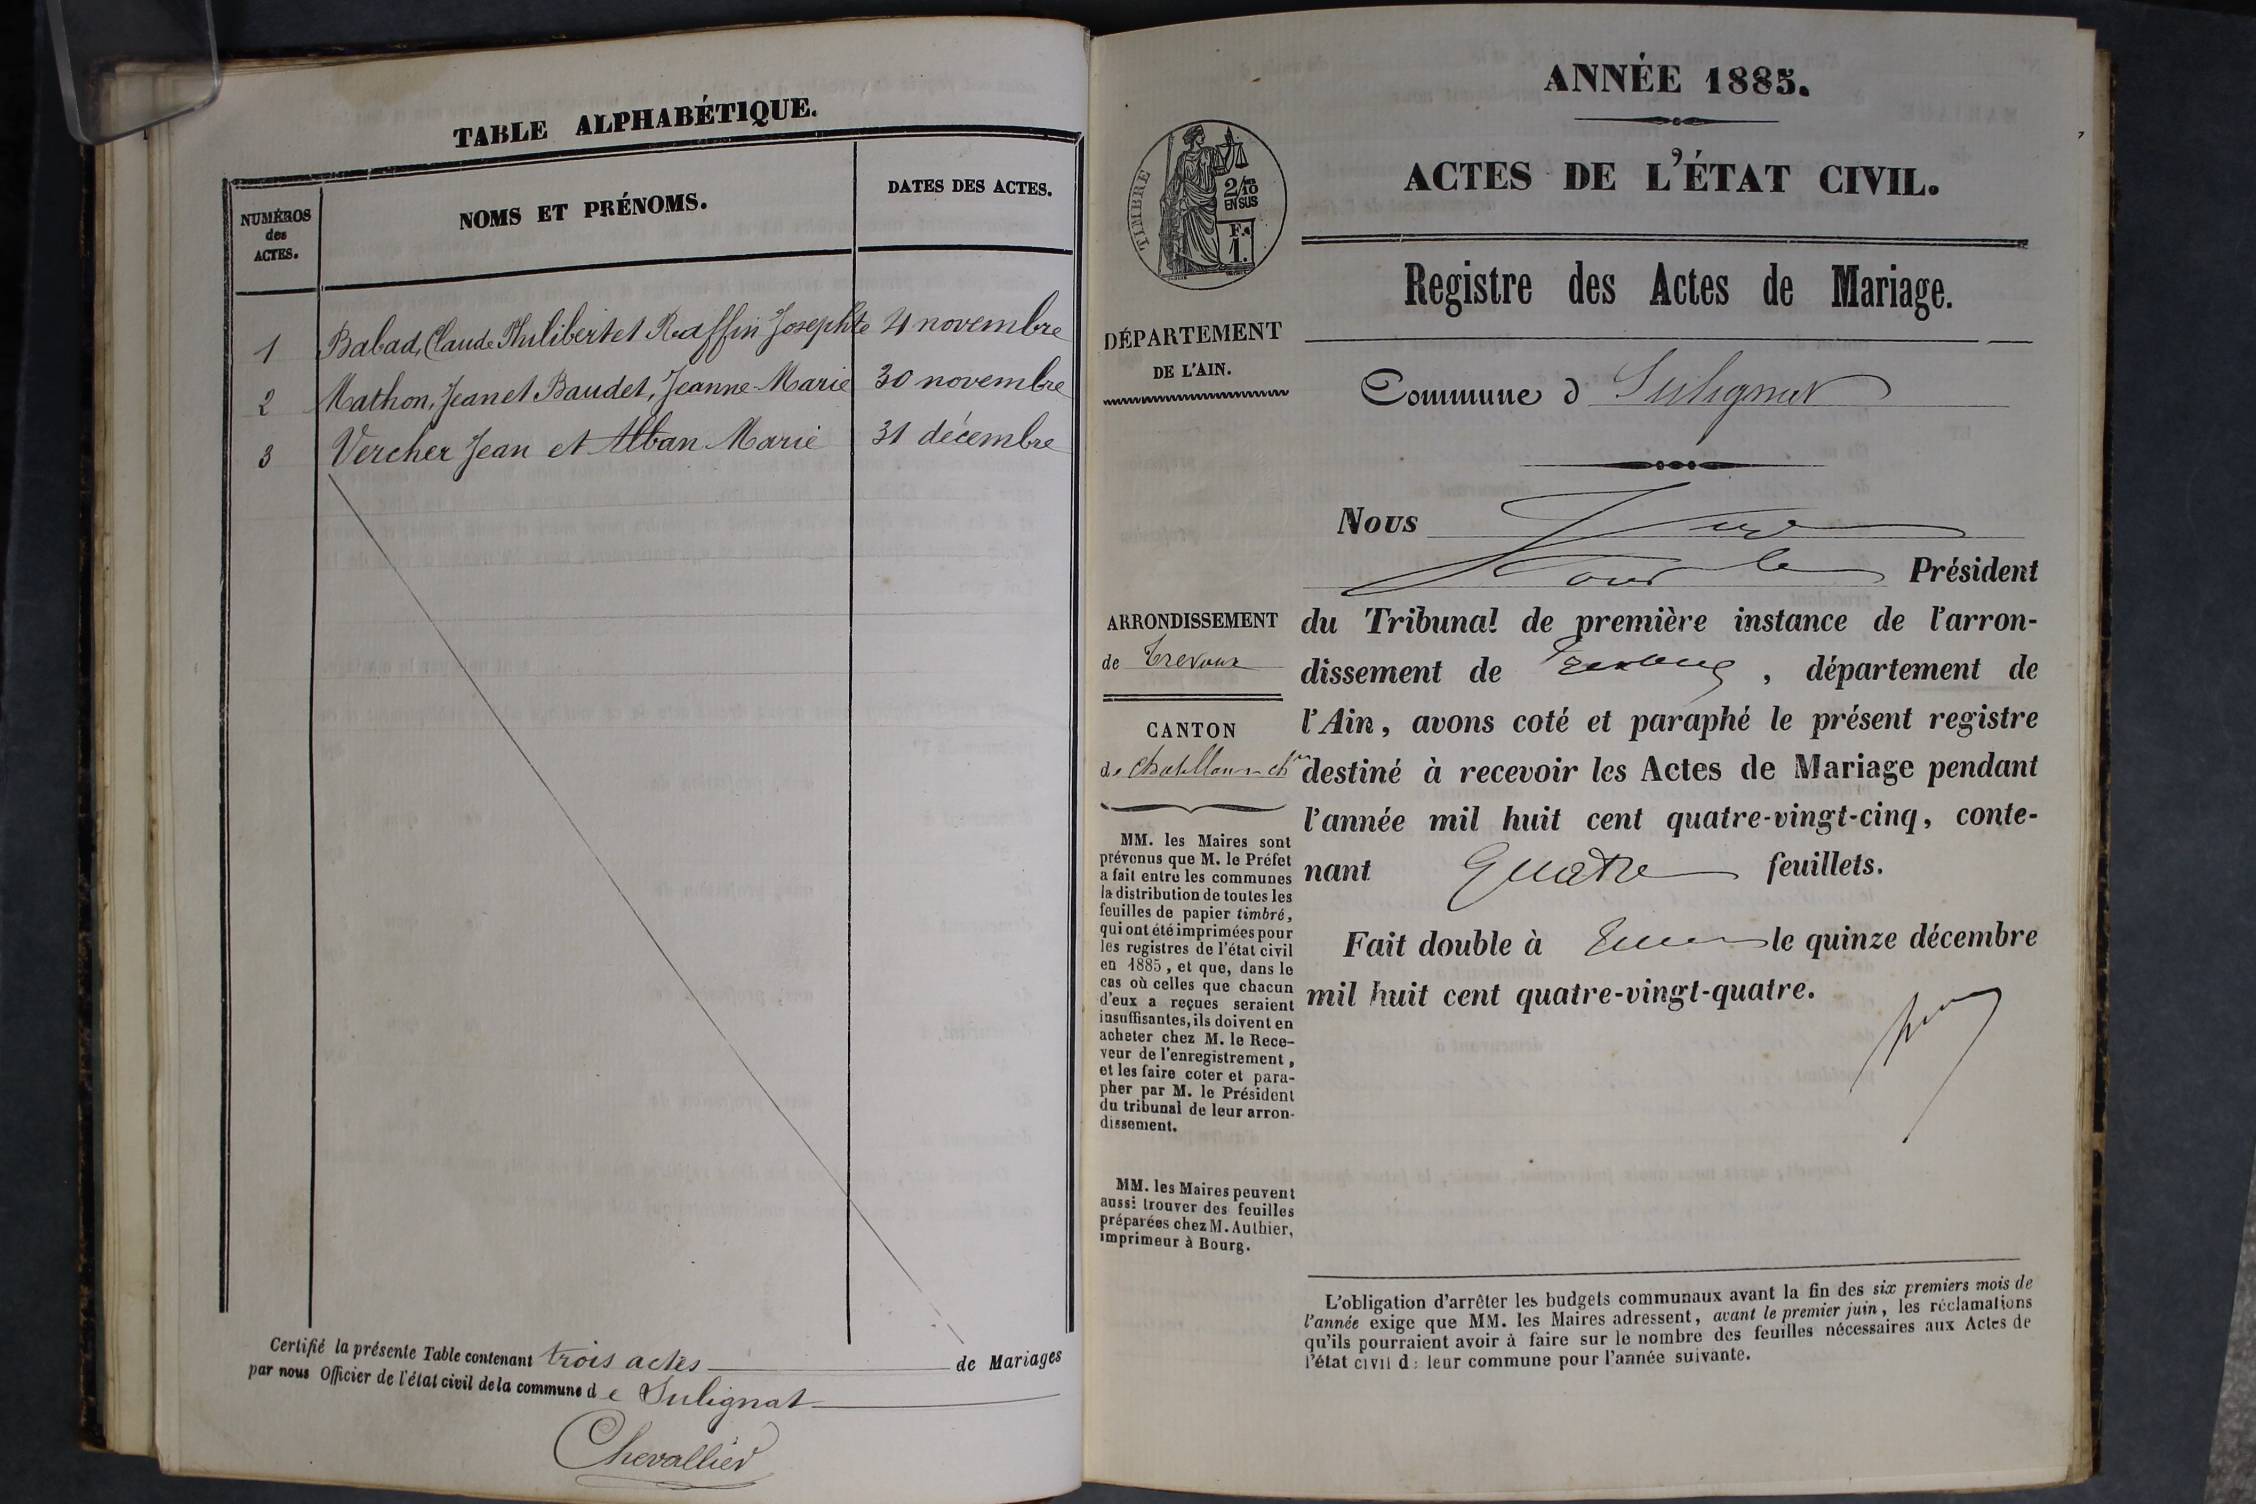 TABLE ALPHABÉTIQUE.
NUMÉROS
des
ACTES.
NOMS ET PRÉNOMS.
DATES DES ACTES.
1 Babad, Claude Philibert et Raffin Josephte 21 novembre
2 Mathon, Jean et Baudet, Jeanne-Marie 30 novembre
3 Vercher Jean et Alban Marie 31 décembre
Certifié la présente Table contenant trois actes de Mariages
par nous Officier de l'état civil de la commune de Sulignat
Chevallier
ANNÉE 1885.
ACTES DE L'ÉTAT CIVIL.
TIMBRE
2/10
EN SUS
1.
Registre des Actes de Mariage.
DÉPARTEMENT
DE L'AIN.
Commune d Sulignat
Nous
Président
ARRONDISSEMENT
de Trevoux
CANTON
de Chatillon-s-Ch
MM. les Maires sont
prévenus que M. le Préfet
a fait entre les communes
la distribution de toutes les
feuilles de papier timbré,
qui ont été imprimées pour
les registres de l'état civil
en 1885, et que, dans le
cas où celles que chacun
d'eux a reçues seraient
insuffisantes, ils doivent en
acheter chez M. le Rece-
veur de l'enregistrement,
et les faire coter et para-
pher par M. le Président
du tribunal de leur arron-
dissement.
MM. les Maires peuvent
aussi trouver des feuilles
préparées chez M. Authier,
imprimeur à Bourg.
du Tribunal de première instance de l'arron-
dissement de Trevoux, département de
l'Ain, avons coté et paraphé le présent registre
destiné à recevoir les Actes de Mariage pendant
l'année mil huit cent quatre-vingt-cinq, conte-
nant Quatre feuillets.
Fait double à le quinze décembre
mil huit cent quatre-vingt-quatre.
L'obligation d'arrêter les budgets communaux avant la fin des six premiers mois de
l'année exige que MM. les Maires adressent, avant le premier juin, les réclamations
qu'ils pourraient avoir à faire sur le nombre des feuilles nécessaires aux Actes de
l'état civil d: leur commune pour l'année suivante.